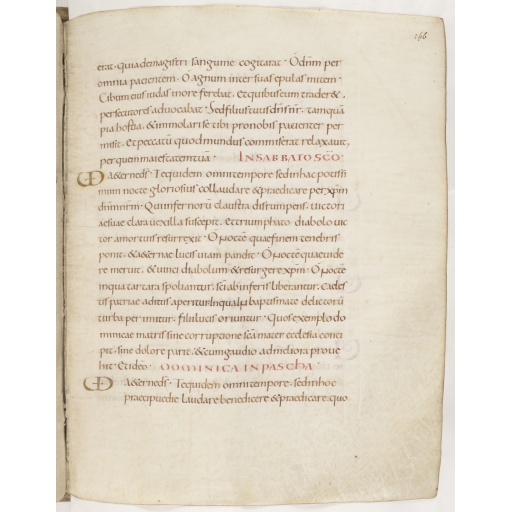 166
erat. quia demagistri sanguine cogitarat. O dn̄m per
omnia pacientem. O agnum inter suas epulas mitem.
Cibum eius iudas inore ferebat. Et quibus eum trader&.
persecutores aduocabat. Sed filius tuus dn̄s nr̄. tamquā
pia hostia. & immolari se tibi pro nobis pacienter per
misit. Et peccatū quod mundus commiserat relaxauit.
per quem maiestatem tuā. IN SABBATO SCO.
UD a&ernedS. Te quidem omni tempore. sed in hac potissi
mum nocte gloriosius collaudare & praedicare per xp̄m
dn̄m nr̄m. Qui infernorū claustra disrumpens. uictori
ae suae clara uexilla suscepit. Et triumphato diabolo uic
tor a mortuis resurrexit. O noctē quae finem tenebris
ponit. & aeternae lucis uiam pandit. O noctē quae uide
re meruit. & uinci diabolum & resurgere xp̄m. O noctē
in qua tartara spoliantur. sci ab inferis liberantur. caeles
tis patriae aditus aperitur. In qua in baptismate delictorū
turba perimitur. filii lucis oriuntur. Quos exemplo do
minicae matris sine corruptione scā mater ecclesia conci
pit. sine dolore parit. & cum gaudio ad meliora proue
hit. Et ideo. DOMINICA IN PASCHA.
UD a&ernedS. Te quidem omni tempore. sed in hoc
praecipue die laudare benedicere & praedicare. quo